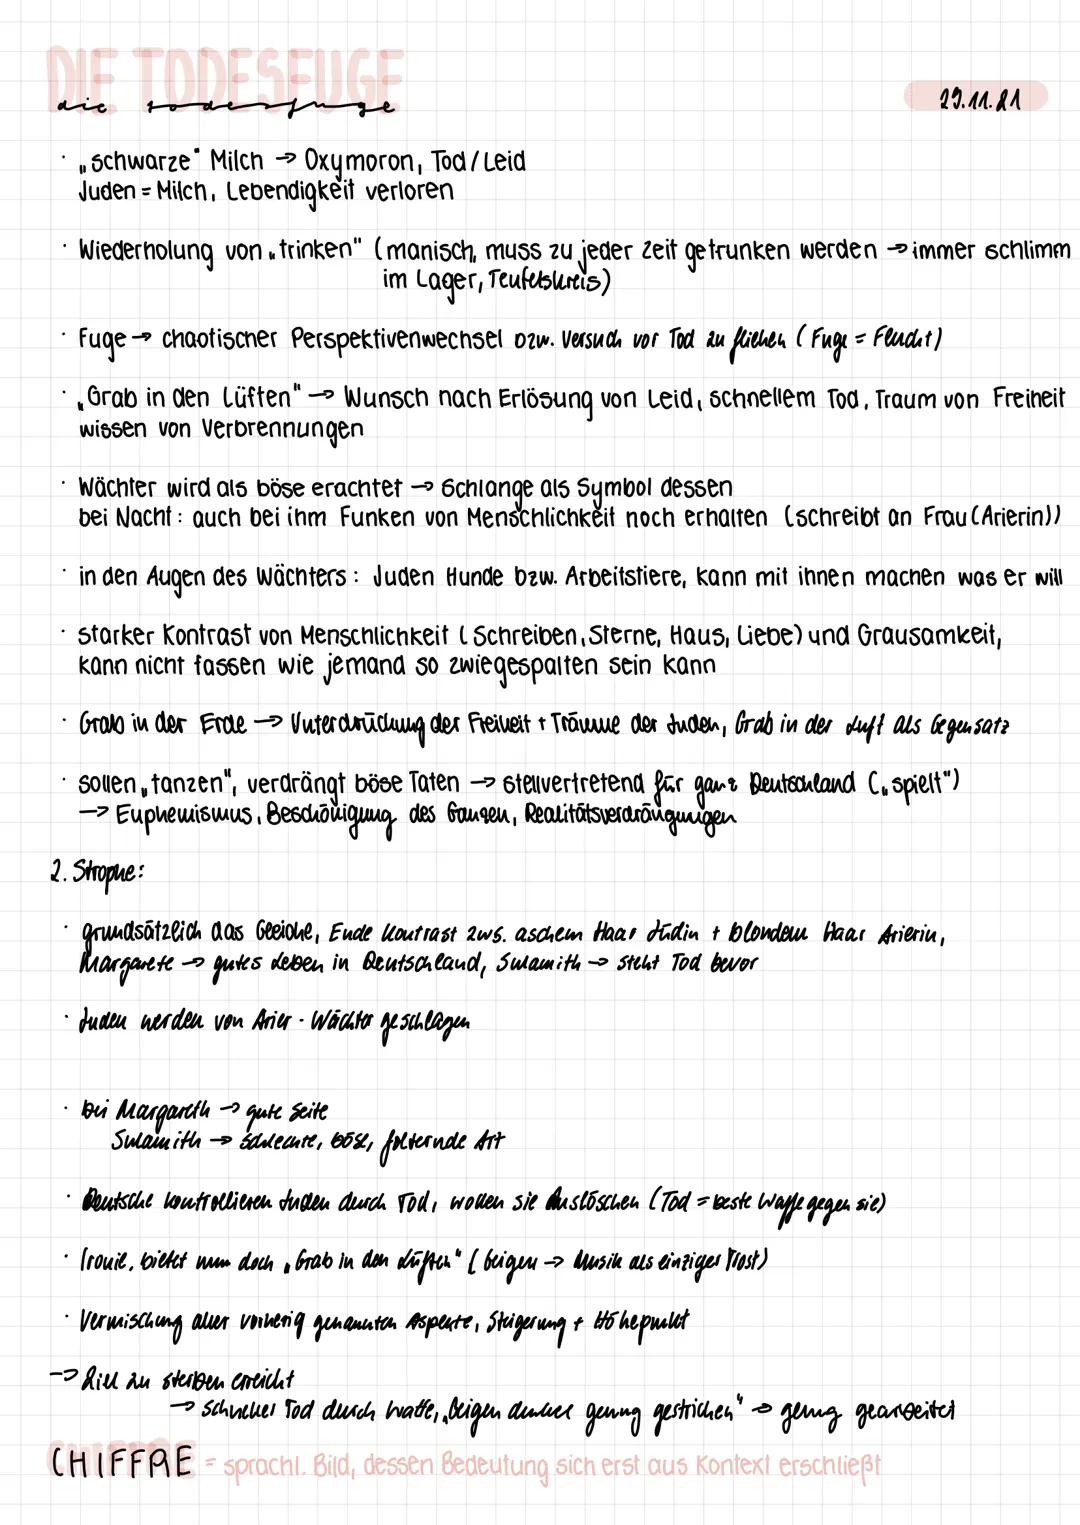 DIE TODESFUGE
die todesfuge
29.11.21
· „schwarze" Milch → Oxymoron, Tod/Leid
Juden = Milch, Lebendigkeit verloren
· Wiederholung von „trinken" (manisch, muss zu jeder Zeit getrunken werden → immer schlimm
im Lager, Teufelskreis)
· Fuge → chaotischer Perspektivenwechsel bzw. Versuch vor Tod zu fliehen (Fuge = Flucht)
· „Grab in den Lüften" → Wunsch nach Erlösung von Leid, schnellem Tod, Traum von Freiheit
wissen von Verbrennungen
· Wächter wird als böse erachtet → Schlange als Symbol dessen
bei Nacht: auch bei ihm Funken von Menschlichkeit noch erhalten (schreibt an Frau (Arierin))
· in den Augen des Wächters: Juden Hunde bzw. Arbeitstiere, kann mit ihnen machen was er will
· starker Kontrast von Menschlichkeit (Schreiben, Sterne, Haus, Liebe) und Grausamkeit,
kann nicht fassen wie jemand so zwiegespalten sein kann
· Grab in der Erde → Unterdrückung der Freiheit + Träume der Juden, Grab in der Luft als Gegensatz
· sollen „tanzen", verdrängt böse Taten → stellvertretend für ganz Deutschland („spielt")
→ Euphemismus, Beschönigung des Ganzen, Realitätsverdrängungen
2. Strophe:
· grundsätzlich das Gleiche, Ende Kontrast zws. aschem Haar Jüdin + blondem Haar Arierin,
Margarete → gutes Leben in Deutschland, Sulamith → steht Tod bevor
· Juden werden von Arier-Wächter geschlagen
· bei Margareth → gute Seite
Sulamith → schlechte, böse, folternde Art
· Deutsche kontrollieren Juden durch Tod, wollen sie auslöschen (Tod = beste Waffe gegen sie)
· Ironie, bietet nun doch „Grab in den Lüften" (Geigen → Musik als einziger Trost)
· Vermischung aller vorherig genannten Aspekte, Steigerung + Höhepunkt
→ Ziel zu sterben erreicht
→ schneller Tod durch Waffe, „Geigen dunkel genug gestrichen" → genug gearbeitet
CHIFFRE = sprachl. Bild, dessen Bedeutung sich erst aus Kontext erschließt